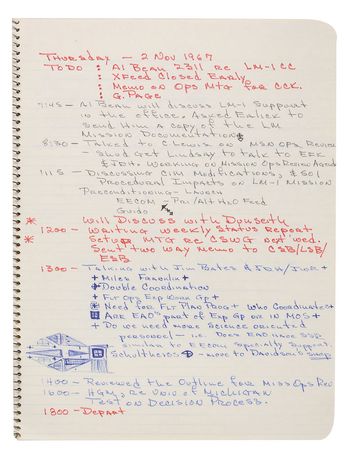 Thursday - 2 Nov 1967
TODO : Al Bean 2311 re LM-1 CC
: XFeed Closed Early
: Memo on Ops Mtg for CCK.
: G. Page
7:45 - Al Bean will discuss LM-1 Support
in the office. Asked to
send him a copy of the LM
Mission Documentation
8:30 - Talked to C Lewis on MSN Ops Review
- Shud get Lindsay to talk to EFK
Working on Mission Ops Review Agenda
1:15 - Discussing CIM Modifications, & 501
Procedural Impacts on LM-1 Mission
Preconditioning - Launch
EECOM - Pri/Alt H2O Feed
Guido
* Will Discuss with Dunseith
1200 - Writing weekly Status Report
* Setup MTG re CSWG next wed.
Sent two way memo to CSB/LSB/
ESB
1300 - Talking with Jim Bates &
+ Miles
+ Double Coordination
+ Flt Ops Exp Work Gp +
* Need for Flt Plan + Who Coordinates +
Are EAO's part of Exp Gp or in MOS +
+ Do we need more Science oriented
personnel - i.e. Does EAO need SSR
similar to EECOM Specialty Support.
Schultheiss - move to Davidson's shop
1400 - Reviewed the Outline for Miss Ops Rev
1600 - HGM, re Univ of Michigan
Test on Decision Process.
1800 - Depart